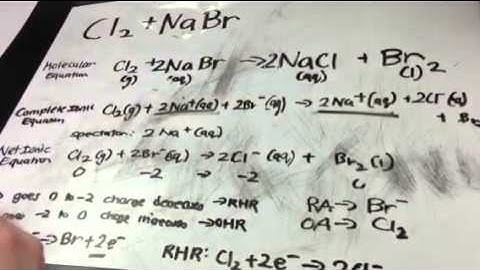 Cl2 + NaBr
Molecular Equation Cl2(g) + 2NaBr(aq) → 2NaCl(aq) + Br2(l)
Complete Ionic Equation Cl2(g) + 2Na+(aq) + 2Br-(aq) → 2Na+(aq) + 2Cl-(aq)
+
spectator: 2Na+(aq)
Net Ionic Equation Cl2(g) + 2Br-(aq) → 2Cl-(aq) + Br2(l)
0 -2 → -2
goes 0 to -2 charge decreases → RHR RA → Br-
-2 to 0 charge increases → OHR OA → Cl2
→ Br + 2e- RHR: Cl2 + 2e- →